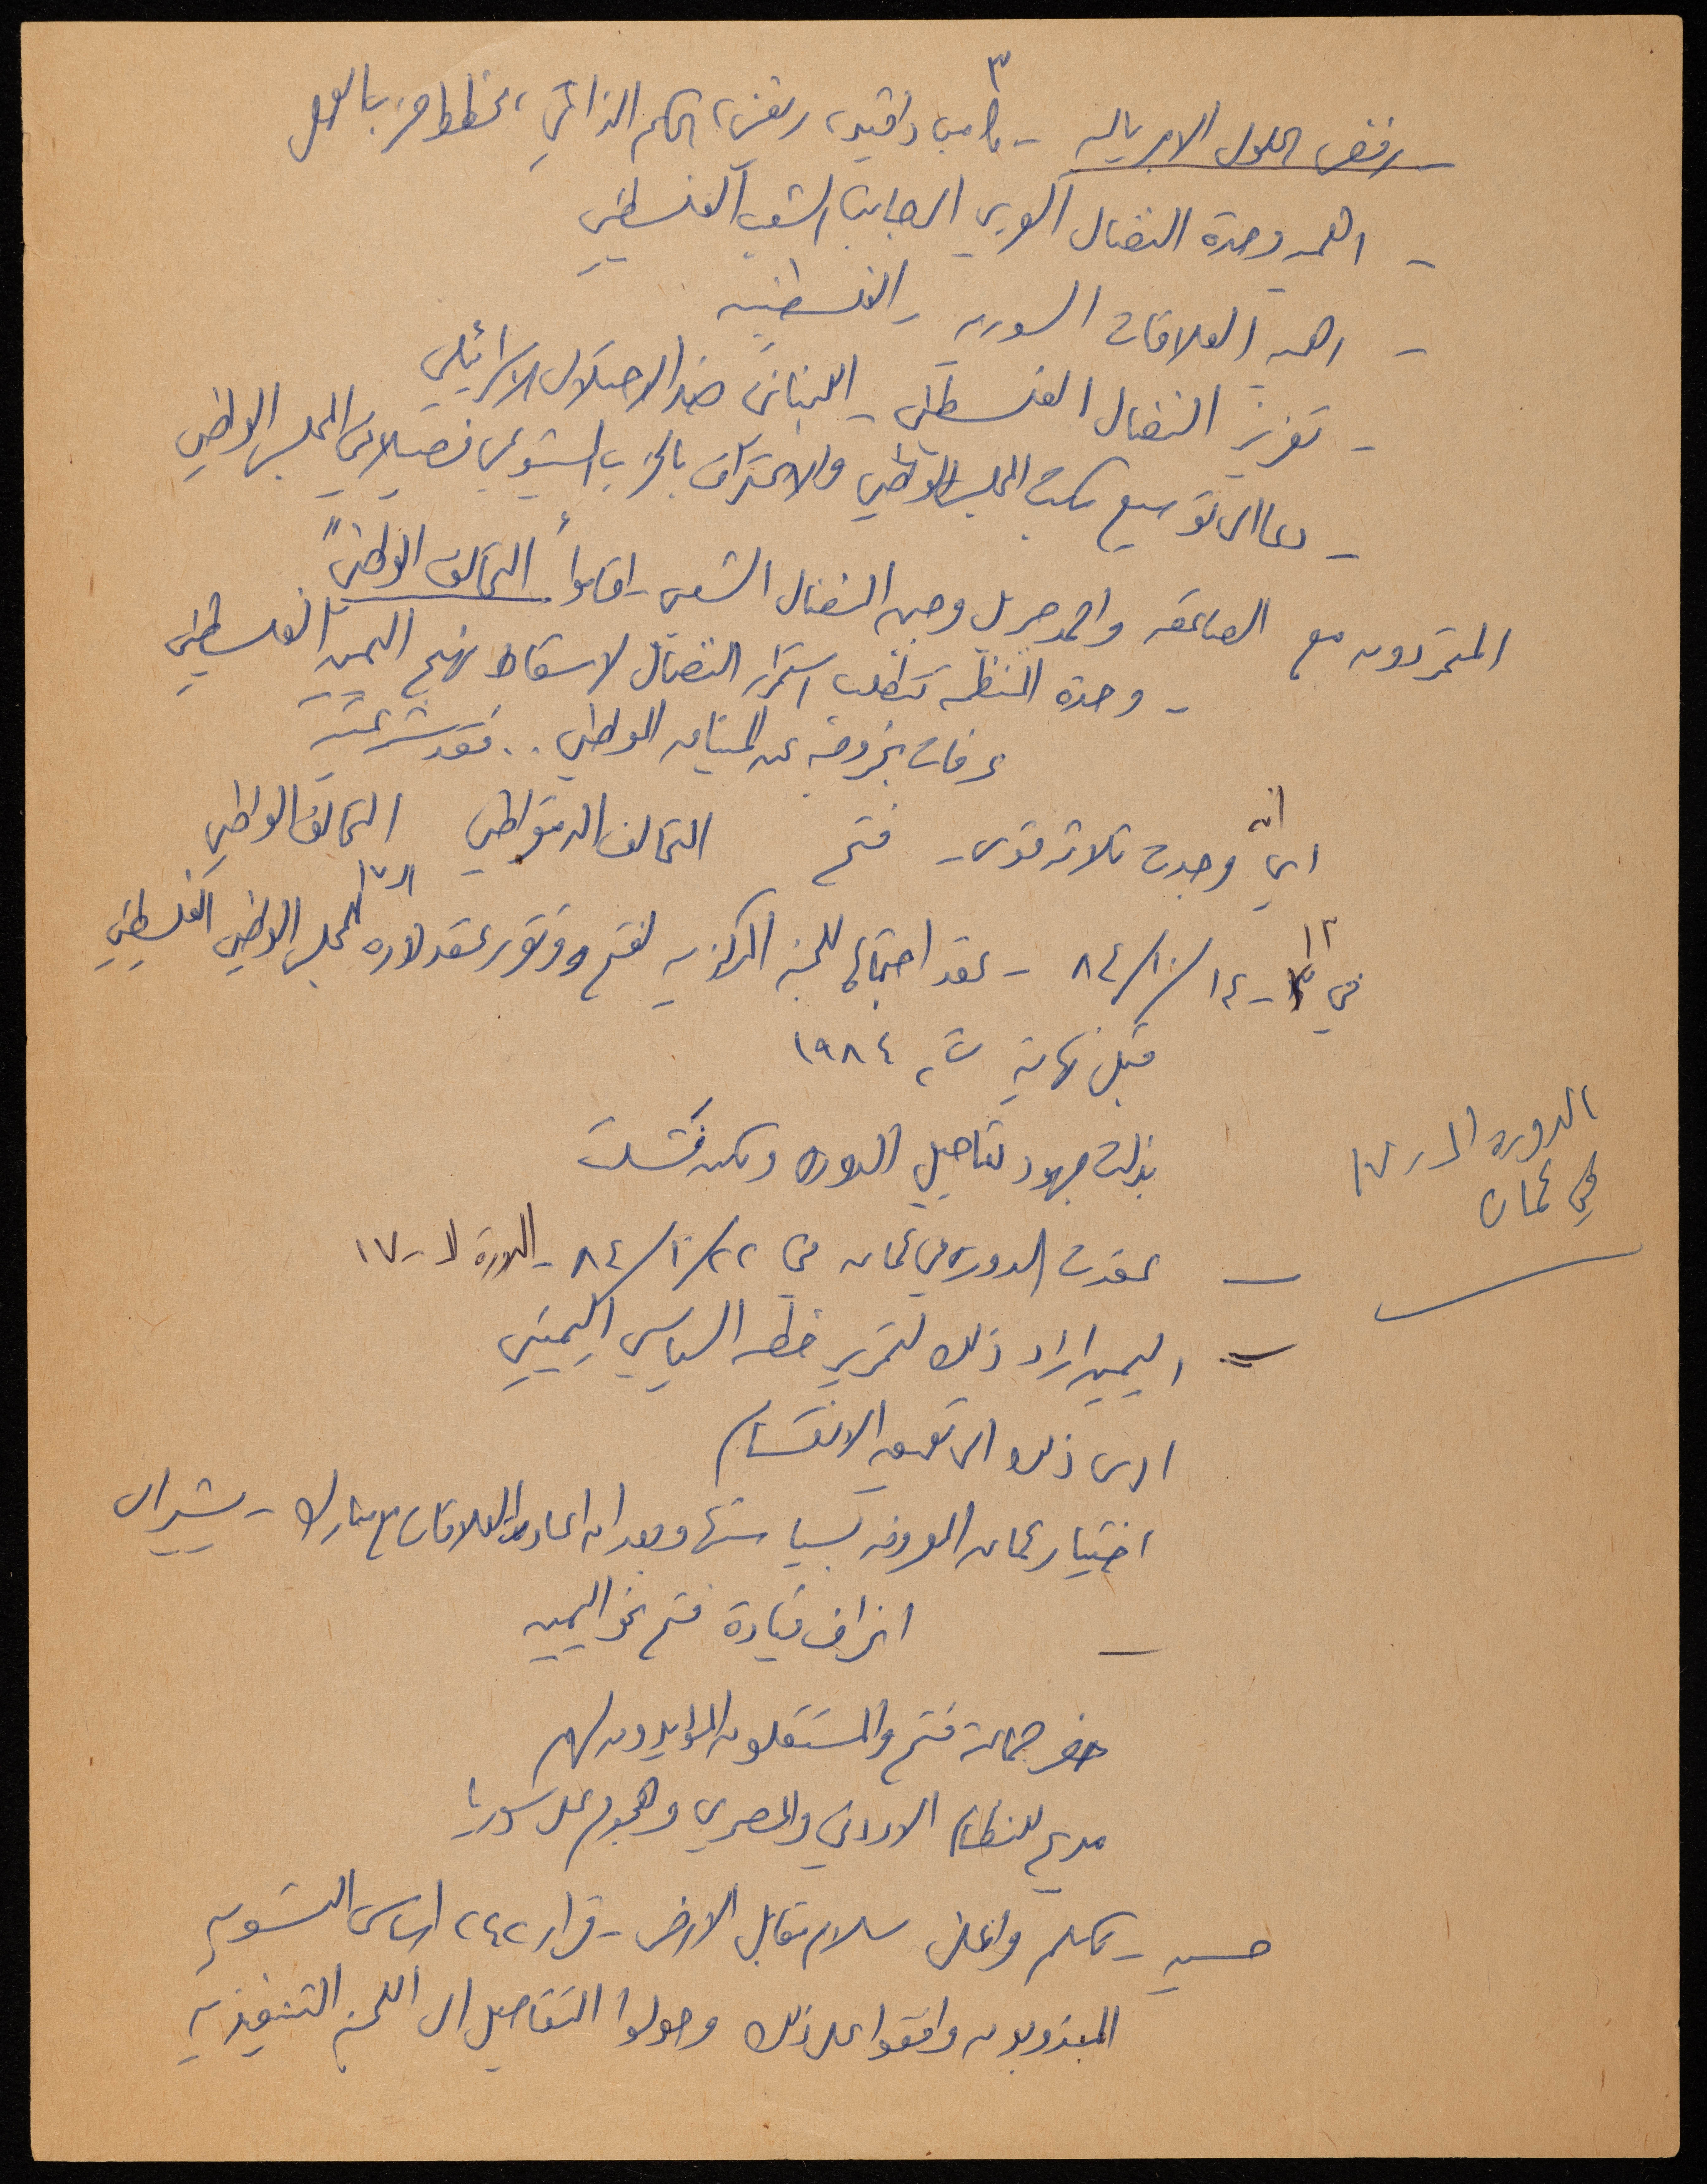 ٣
رفض الحلول الامبرياليه - كامب دافيد، ريغن، الحكم الذاتي، مخطط حزب العمل
- اهميه وحدة النضال السوري الى جانب الشعب الفلسطيني
- اهميه العلاقات السوريه - الفلسطينيه
- تعزيز النضال الفلسطيني - اللبناني ضد الاحتلال الاسرائيلي
- دعا الى توسيع مكتب المجلس الوطني والاعتراف بالحزب الشيوعي فصيلا في المجلس الوطني
المتمردون مع الصاعقه واحمد جبريل وجبهه النضال الشعبي - اقاموا "التحالف الوطني"
- وحدة المنظمه تتطلب استمرار النضال لاسقاط نهج اليمين الفلسطيني
عرفات بخروجه عن الميثاق الوطني .. فقد شرعيته
اي انه وجدت ثلاثه قوى - فتح التحالف الديمقراطي التحالف الوطني
في ١٢ - ١٤/١٠/٨٤ - عقد اجتماع للجنه المركزيه لفتح وتقرر عقد الدوره الـ ١٧ للمجلس الوطني الفلسطيني
قبل نهاية ت٢ ١٩٨٤
بذلت جهود لتاجيل الدوره ولكن فشلت
الدوره الـ ١٧
في عمان
- عقدت الدوره في عمان في ٢٢/١٠/٨٤ - الدورة الـ ١٧
= اليمين اراد ذلك لتمرير خطه السياسي اليميني
ادى ذلك الى تعميق الانقسام
اختيار عمان المعروفه بسياستها وبعد ان اعادت العلاقات مع مبارك - يشير الى
- انحراف قيادة فتح نحو اليمين
حضر جماعة فتح والمستقلون المؤيدون لهم
مديح للنظام الاردني والمصري وهجوم على سوريا
حسين - تكلم واعلن سلام مقابل الارض - قرار ٢٤٢ اساس التسويه
المندوبون وافقوا على ذلك وحولوا التفاصيل الى اللجنه التنفيذيه